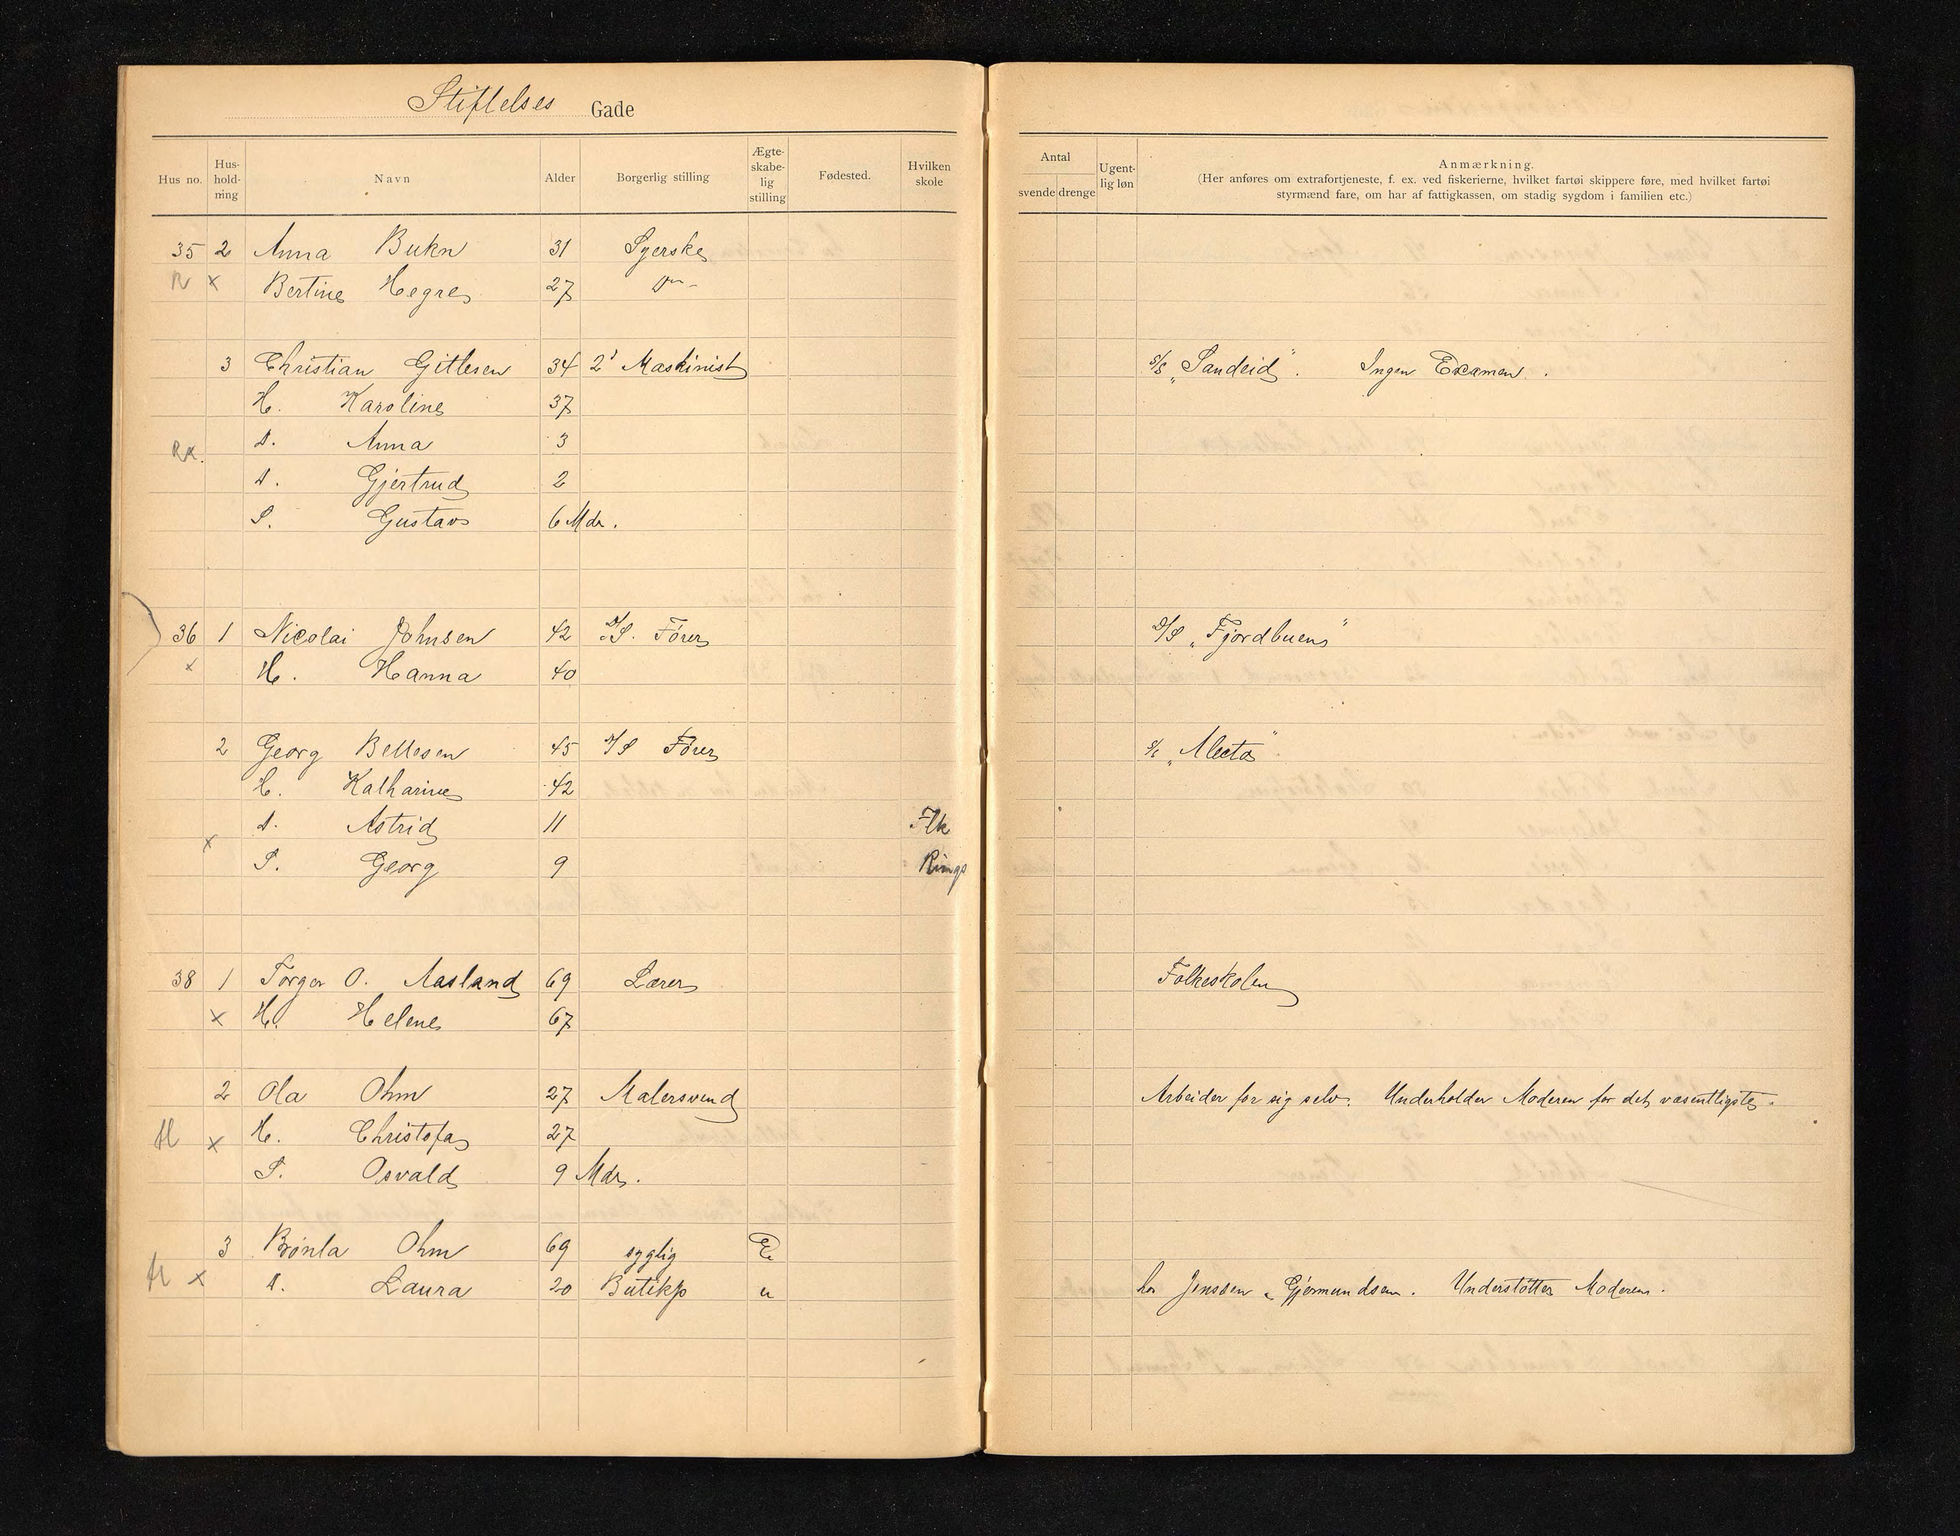 Stiftelses Gade
Hus no. Hus-hold-ning Navn Alder Borgerlig stilling Ægte-skabe-lig stilling Fødested. Hvilken skole
Antal svende drenge Ugent-lig løn Anmærkning.
(Her anføres om extrafortjeneste, f. ex. ved fiskerierne, hvilket fartøi skippere føre, med hvilket fartøi
styrmænd fare, om har af fattigkassen, om stadig sygdom i familien etc.)
35 2 Anna Bukn 31 Syerske
R x Bertine Hegre 27 Do
3 Christian Gitlesen 34 2' Maskinist S/S "Sandeid". Ingen Examen.
H. Karoline 37
Rx. D. Anna 3
D. Gjertrud 2
S. Gustav 6 Mdr.
36 1 Nicolai Johnsen 42 D/S. Fører D/S "Fjordbuen"
x H. Hanna 40
2 Georg Bellesen 45 D/S Fører S/S "Alecto"
H. Katharine 42
D. Astrid 11 Flk
x S. Georg 9 Rings
38 1 Torger O. Aasland 69 Lærer Folkeskolen
x H. Helene 67
2 Ola Ohm 27 Malersvend Arbeider for sig selv. Underholder Moderen for det væsentligste.
H x H. Christofa 27
S. Osvald 9 Mdr.
3 Brønla Ohm 69 syglig E
H x D. Laura 20 Butikp u hos Jenssen & Gjermundsen. Understøtter Moderen.